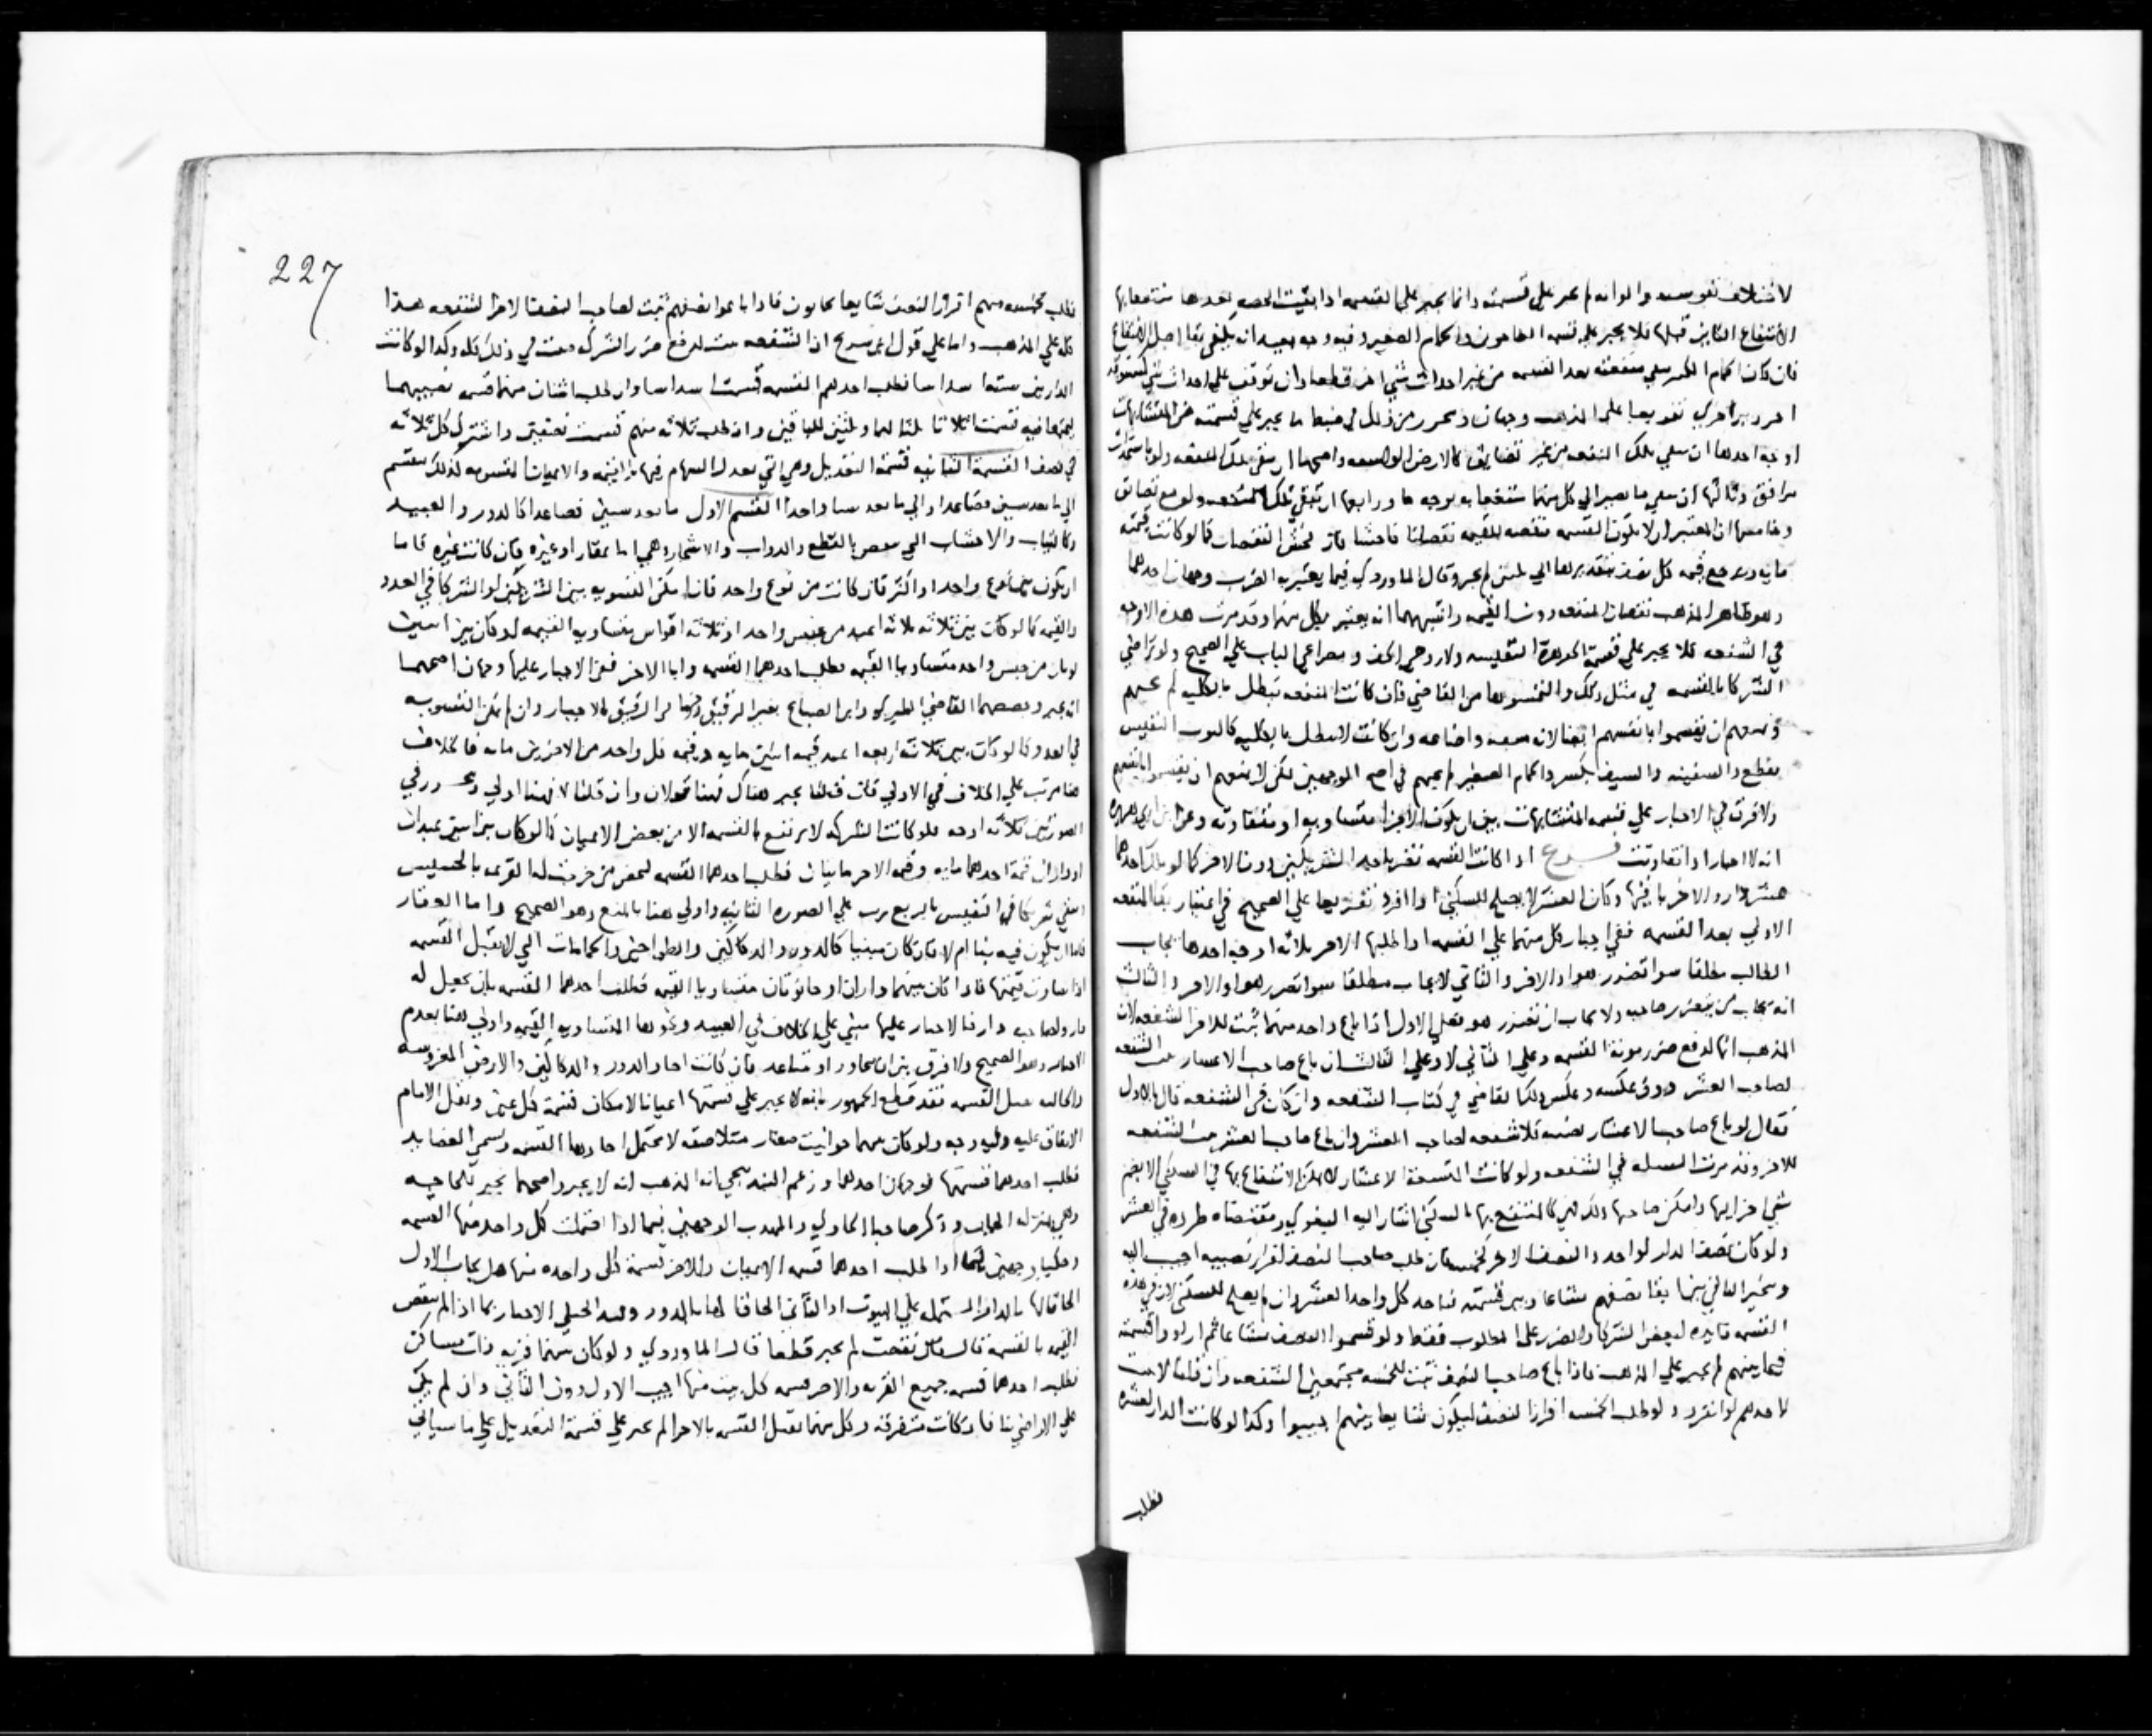 لاختلاف تقويسه والوانه لم يجبر على قسمته وانما يجبر على القسمه اذا بقيت الحصه بعدها منتفعا بها
الانتفاع الثابت قبلها فلا يجبر على قسمه الطاحون والحمام الصغير وفيه وجه بعيد انه يكفي بقا اصل الانتفاع
فان كان الحمام الكبير يبقي منفعته بعد القسمه من غير احداث شي اخر قطعا وان توقف على احداث شي
او بير اخري تفريعا على المذهب وجهان وتحرر من ذلك في ضبط ما يجبر على قسمته من المتشابهات
اوجه احدها ان يبقي تلك المنفعه من غير تضايق كالارض الواسعه واصحها ان تبقي تلك المنفعه ولو باستحداث
مرافق وثالثها ان يبقي ما يصير الي كل منهما منتفعا به بوجه ما ورابعها ان تبقي تلك المنفعه ولو مع تضايق
وخامسها ان المعتبر ان لا تكون القسمه منقصه للقيمه نقصانا فاحشا فان فحش النقصان كما لو كانت قيمته
مايه ويرجع قيمه كل نصف بتقديرها الي ثلثين لم يجبر وقال الماوردي فيما يعتبر به الضرب وجهان احدهما
وهو ظاهر المذهب نقصان المنفعه دون القيمه واشبههما انه يعتبر بكل منهما وقد مرت هذه الاوجه
في الشفعه فلا يجبر على قسمه الجوهرة النفيسه ولا زوجي الخف و مصراعي الباب على الصحيح ولو تراضي
الشركا بالقسمه في مثل ذلك والتمسوها من القاضي فان كانت المنفعه تبطل بالكليه لم يجبهم
ويمنعهم ان يقسموا بانفسهم ايضا لانه سفه واضاعه وان كانت لا تبطل بالكليه كالثوب النفيس
يقطع والسفينه والسيف يكسر والحمام الصغير لم يجبهم في اصح الوجهين لكن لا يمنعهم ان يقسموا بانفسهم
ولا فرق في الاجبار على قسمه المتشابهات بين ان تكون الاجزا متساويه او متفاوته وعن ابن ابي هريره
انه لا اجبار اذا تفاوتت فرع اذا كانت القسمه تضر باحد الشريكين دون الاخر كما لو ملك احدهما
عشر دار والاخر باقيها وكان العشر لا يصلح للسكني اذا افرد تفريعا على الصحيح في اعتبار بقا المنفعه
الاولي بعد القسمه ففي اجبار كل منهما على القسمه اذا طلبها الاخر ثلاثه اوجه احدها يجاب
الطالب مطلقا سوا تضرر هو او الاخر والثاني لا يجاب مطلقا سوا تضرر هو او الاخر والثالث
انه يجاب من يتضرر صاحبه ولا يجاب ان تضرر هو فعلي الاول اذا باع واحد منهما ثبت للاخر الشفعه لان
المذهب انها لدفع ضرر مونه القسمه وعلى الثاني لا وعلى الثالث ان باع صاحب الاعشار ثبت الشفعه
لصاحب العشر دون عكسه وعكس ذلك القاضي في كتاب الشفعه وان كان في الشفعه قال بالاول
فقال لو باع صاحب الاعشار نصيبه فلا شفعه لصاحب العشر وان باع صاحب العشر ثبت الشفعه
للاخر وقد مرت المسله في الشفعه ولو كانت التسعة الاعشار لا يمكن الانتفاع بها في السكني الا بضم
شي اخر اليها وامكن صاحبها ذلك فهي كالمنتفع بها بالسكني اشار اليه البغوي ومقتضاه طرده في العشر
ولو كان نصف الدار لواحد والنصف الاخر لخمسه فان طلب صاحب النصف افراز نصيبه اجيب اليه
وتخير الباقين بينهما بقا نصفهم مشاعا وبين قسمته فياخذ كل واحد العشر وان لم يصلح للسكني لان في هذه
القسمه فايده لبعض الشركا والضرر على المطلوب فقط ولو قسموا النصف مشاعا ثم ارادوا قسمته
فيما بينهم لم يجبر على المذهب فاذا باع صاحب النصف ثبت للخمسه مجتمعين الشفعه وان قلنا لا تثبت
لاحدهم لو انفرد ولو طلب الخمسه افراز النصف ليكون شايعا بينهم اجيبوا وكذا لو كانت الدار لعشره
فطلب
227
فطلب خمسه منهم افراز النصف شايعا يجابون فاذا باعوا نصفهم ثبت لصاحب النصف الاخر الشفعه هذا
كله علي المذهب واما علي قول ابن سريج ان الشفعه تثبت لدفع ضرر الشرك فتثبت في ذلك كله وكذا لو كانت
الدار بين سته اسداسا فطلب احدهم القسمه قسمت اسداسا وان طلب اثنان منهما قسمه نصيبهما
ليجتمعا فيه قسمت اثلاثا ثلثا لهما وثلثين للباقين وان طلب ثلاثه منهم قسمت نصفين واشترك كل ثلاثه
في نصف القسمة الثانيه قسمة التعديل وهي التي تعدل السهام فيها بالقيمه والاعيان المقسومه كذلك تنقسم
الي ما يعد شيين فصاعدا والي ما يعد شيا واحدا القسم الاول ما يعد شيين فصاعدا كالدور والعبيد
وكالثياب والاخشاب التي تنقص بالقطع والدواب والاشجار وهي اما بعقار او غيره فان كانت غيره فاما
ان يكون نوعا واحدا او اكثر فان كانت من نوع واحد فان امكن التسويه بين الشريكين او الشركا في العدد
والقيمه كما لو كانت بين ثلاثه ثلاثه اعبد من جنس واحد او ثلاثه افراس متساويه القيمه او كان بين اثنين
ثوبان من جنس واحد متساويا القيمه فطلب احدهما القسمه وابا الاخر ففي الاجبار عليها وجهان اصحهما
انه يجبر وخصصهما القاضي الطبري وابن الصباغ بغير الرقيق وجزما في الرقيق بالاجبار وان لم تمكن التسويه
في العدد كما لو كان بين ثلاثه اربعه اعبد قيمه اثنين مايه وقيمه كل واحد من الاخرين مايه فالخلاف
هنا مرتب علي الخلاف في الاولي فان قلنا يجبر هناك فهنا قولان وان قلنا لا فهنا اولي
الصورتين ثلاثه اوجه فلو كانت الشركه لا ترتفع بالقسمه الا من بعض الاعيان كما لو كان بين اثنين عبدان
او داران قيمة احدهما مايه وقيمه الاخر مايتان فطلب احدهما القسمه ليختص من خرجت له القرعه بالخسيس
ويبقي شريكا في النفيس بالربع ترتب علي الصوره الثانيه واولي هنا بالمنع وهو الصحيح واما العقار
فاما ان يكون فيه بنا ام لا فان كان مبنيا كالدور والدكاكين والطواحين والحمامات التي لا تقبل القسمه
اذا تساوت قيمتها فاذا كان بينهما داران او حانوتان متساويا القيمه فطلب احدهما القسمه بان يجعل له
دار ولصاحبه دار فالاجبار عليها مبني علي الخلاف في العبيد ونحوها المتساويه القيمه واولي هنا بعدم
الاجبار وهو الصحيح ولا فرق بين ان تتجاور او تتباعد فان كانت احاد الدور والدكاكين والارض المغروسه
والخاليه تقبل القسمه فقد قطع الجمهور بانه لا يجبر علي قسمتها اعيانا لامكان قسمة كل عين ونقل الامام
الاتفاق عليه وفيه وجه ولو كان بينهما حوانيت صغار متلاصقه لا تحتمل احادها القسمه وتسمي العضايد
فطلب احدهما قسمتها فوجهان احدهما وزعم البندنيجي انه المذهب انه لا يجبر واصحهما يجبر للحاجه
وذكر صاحبا الحاوي والمهذب الوجهين فيما اذا احتملت كل واحده منها القسمه
وحكيا وجهين فيما اذا طلب احدهما قسمه الاعيان والاخر قسمة كل واحده منها هل يجاب الاول
الحاقا لها بالدار المشتمله علي البيوت او الثاني الحاقا لها بالدور وقيد الجيلي الاجبار بما اذا لم تنقص
القيمه بالقسمه قال فان نقصت لم يجبر قطعا قال الماوردي ولو كان بينهما قريه ذات مساكن
فطلب احدهما قسمه جميع القريه والاخر قسمه كل بيت منها اجيب الاول دون الثاني وان لم يكن
علي الاراضي بنا فان كانت متفرقه وكل منها تقبل القسمه بالاجزا لم يجبر علي قسمة التعديل علي ما سياتي